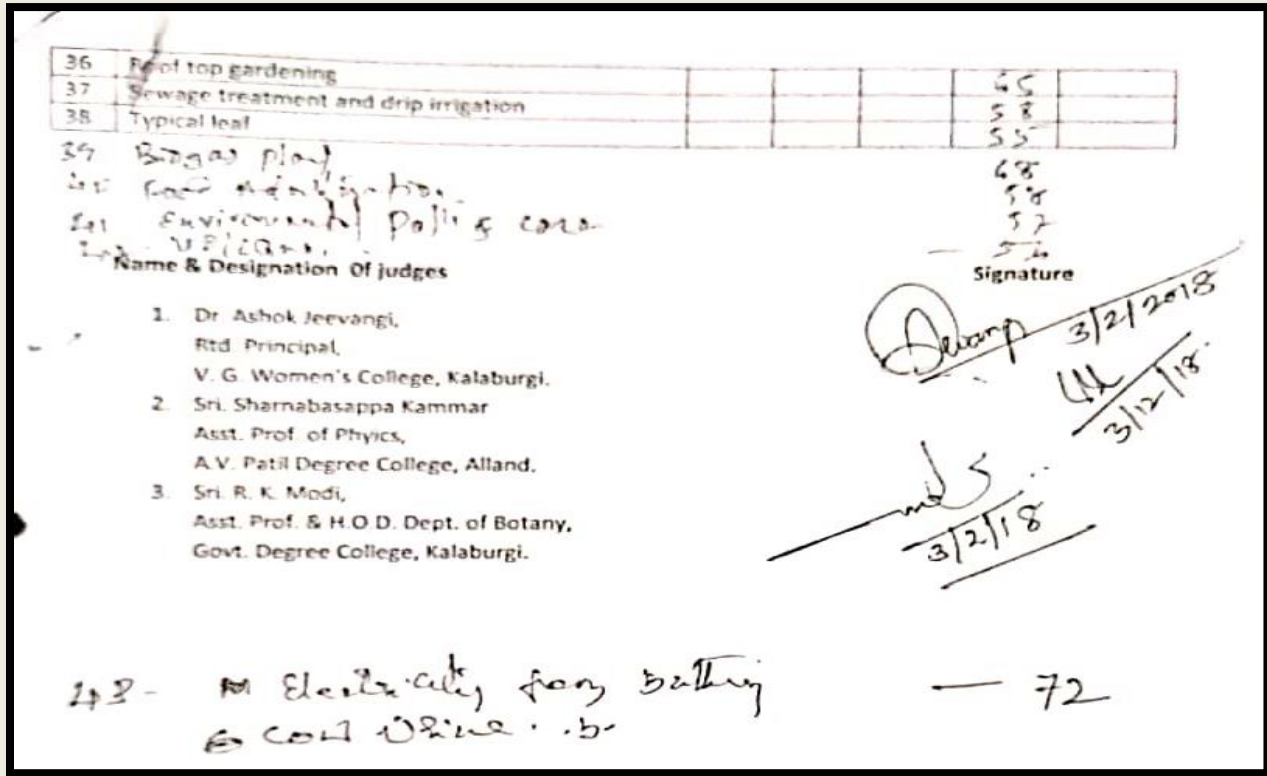 36 Roof top gardening 65
37 Sewage treatment and drip irrigation 58
38 Typical leaf 55
39 Biogas plant 68
58
41 Environmental 57
Name & Designation Of judges
Signature
1. Dr Ashok Jeevangi,
Rtd. Principal,
V. G. Women's College, Kalaburgi.
3/2/2018
2. Sri. Sharnabasappa Kammar
Asst. Prof. of Phyics,
A.V. Patil Degree College, Alland.
3/12/18.
3. Sri. R. K. Modi,
Asst. Prof. & H.O.D. Dept. of Botany,
Govt. Degree College, Kalaburgi.
3/2/18
43 - Electricity from Battery — 72